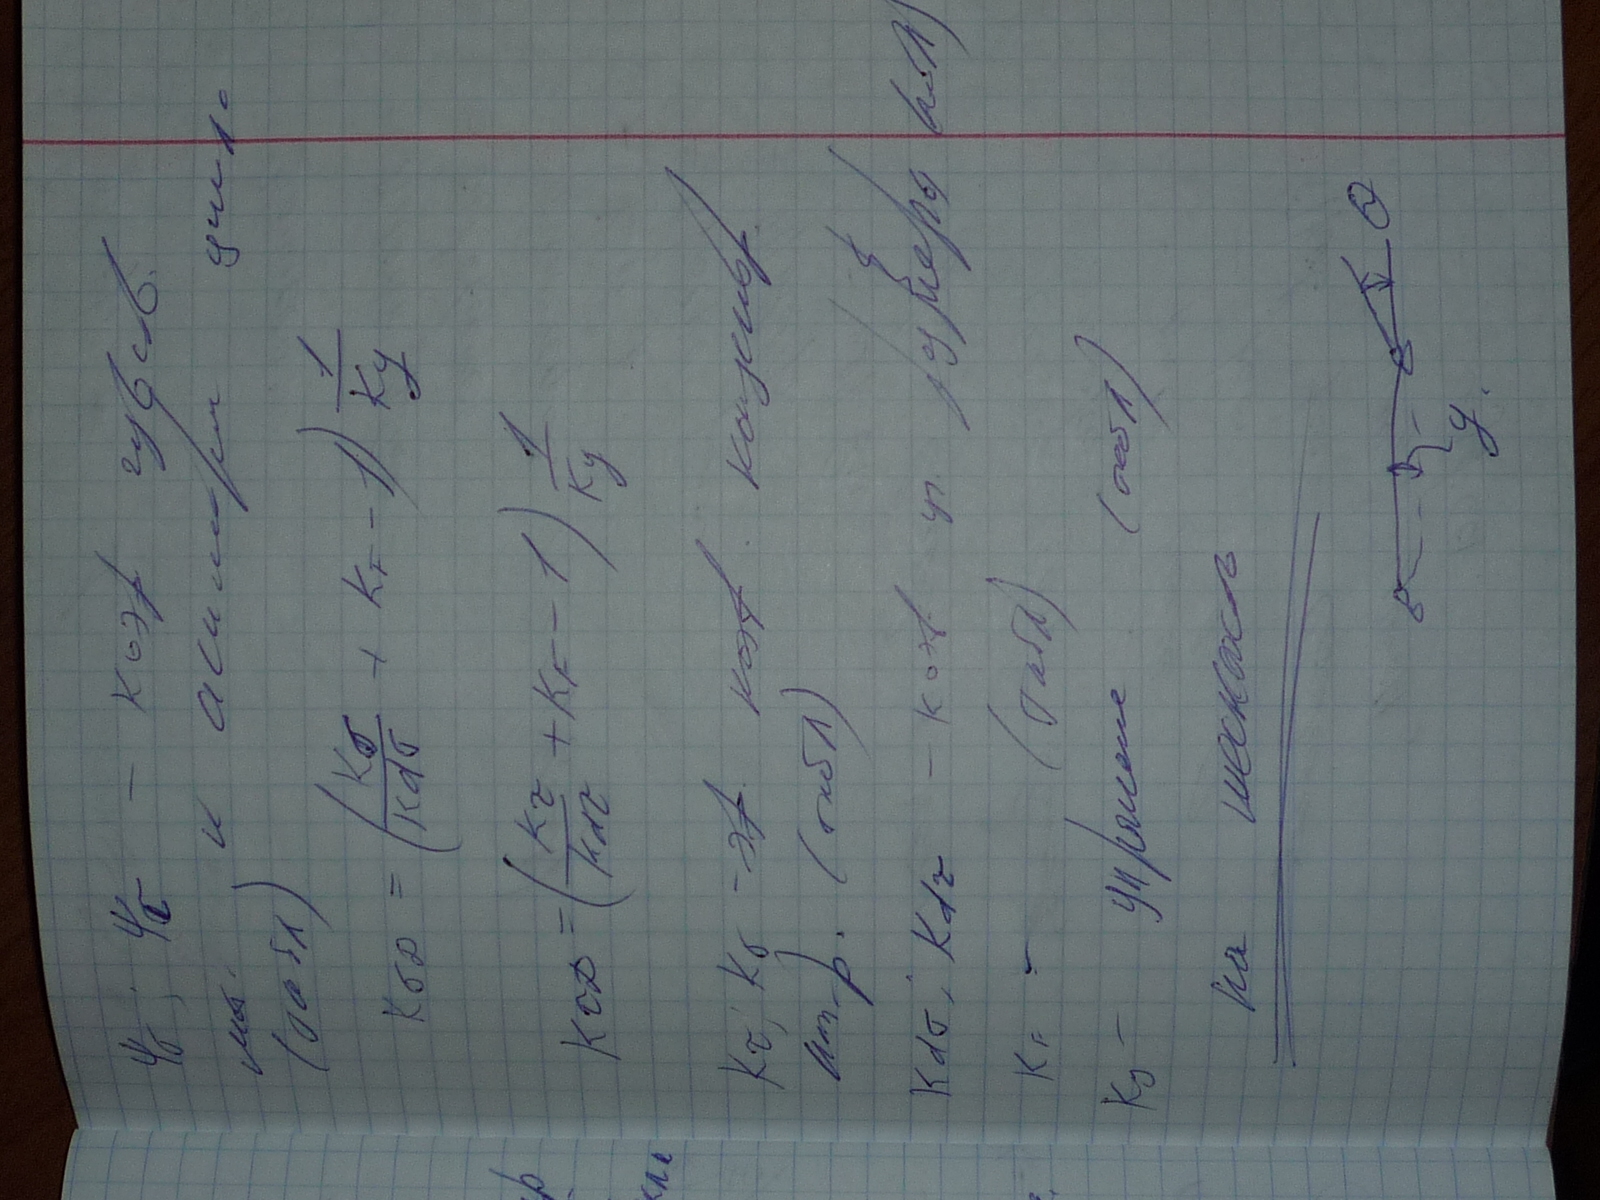 ψσ; ψτ – коэф чувств.
мат. к асимметрии цикла
(табл)
KσD = (Kσ/Kdσ + KF – 1) 1/Ky
KτD = (Kτ/Kdτ + KF – 1) 1/Ky
Kτ; Kσ – эф. коэф. концентр.
напр. (табл)
Kdσ; Kdτ – коэф размера табл)
KF – (табл)
Ky – упрочнение (табл)
На жесткость
y.